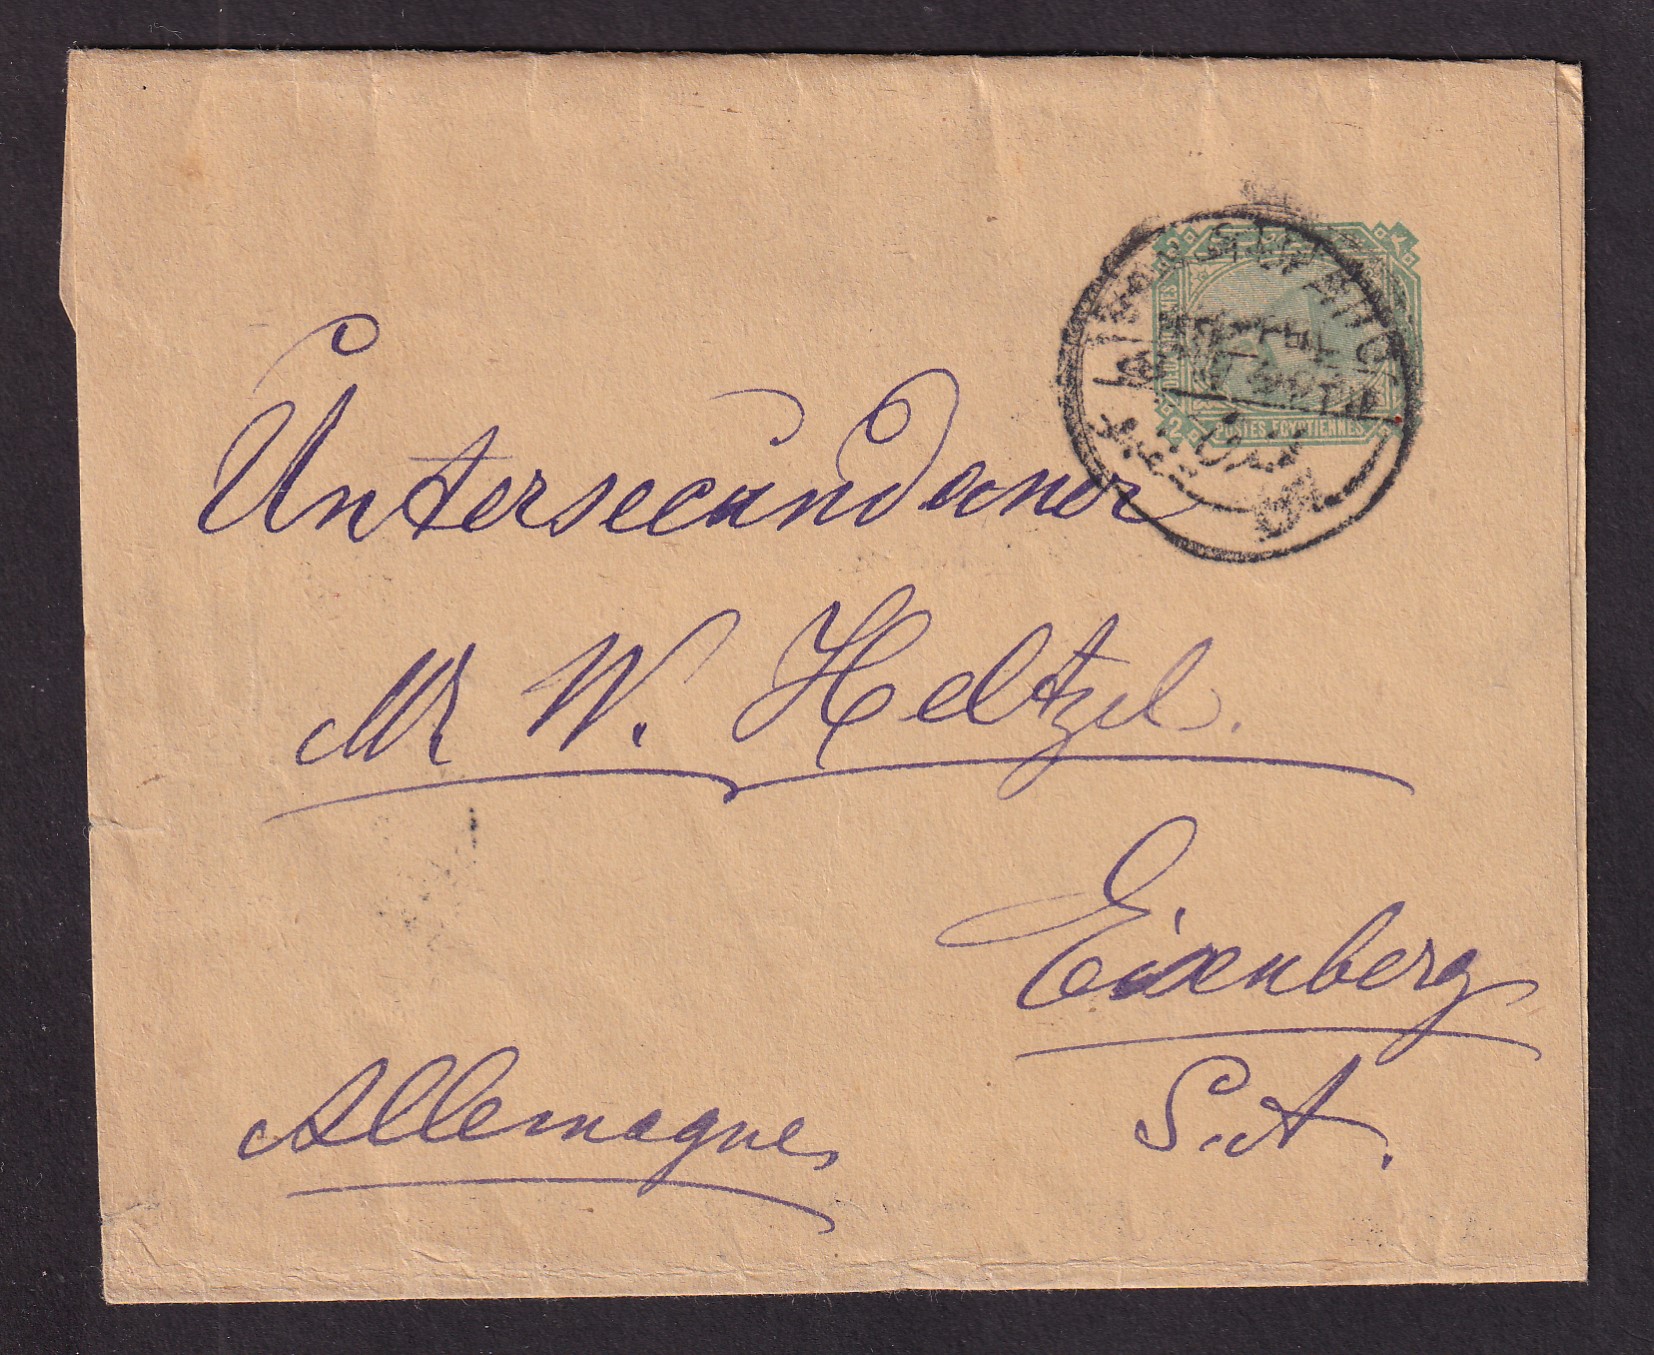 POSTES EGYPTIENNES
2
2
Untersecundaner
Mr W. Heltzel.
Eisenberg
S.A.
Allemagne